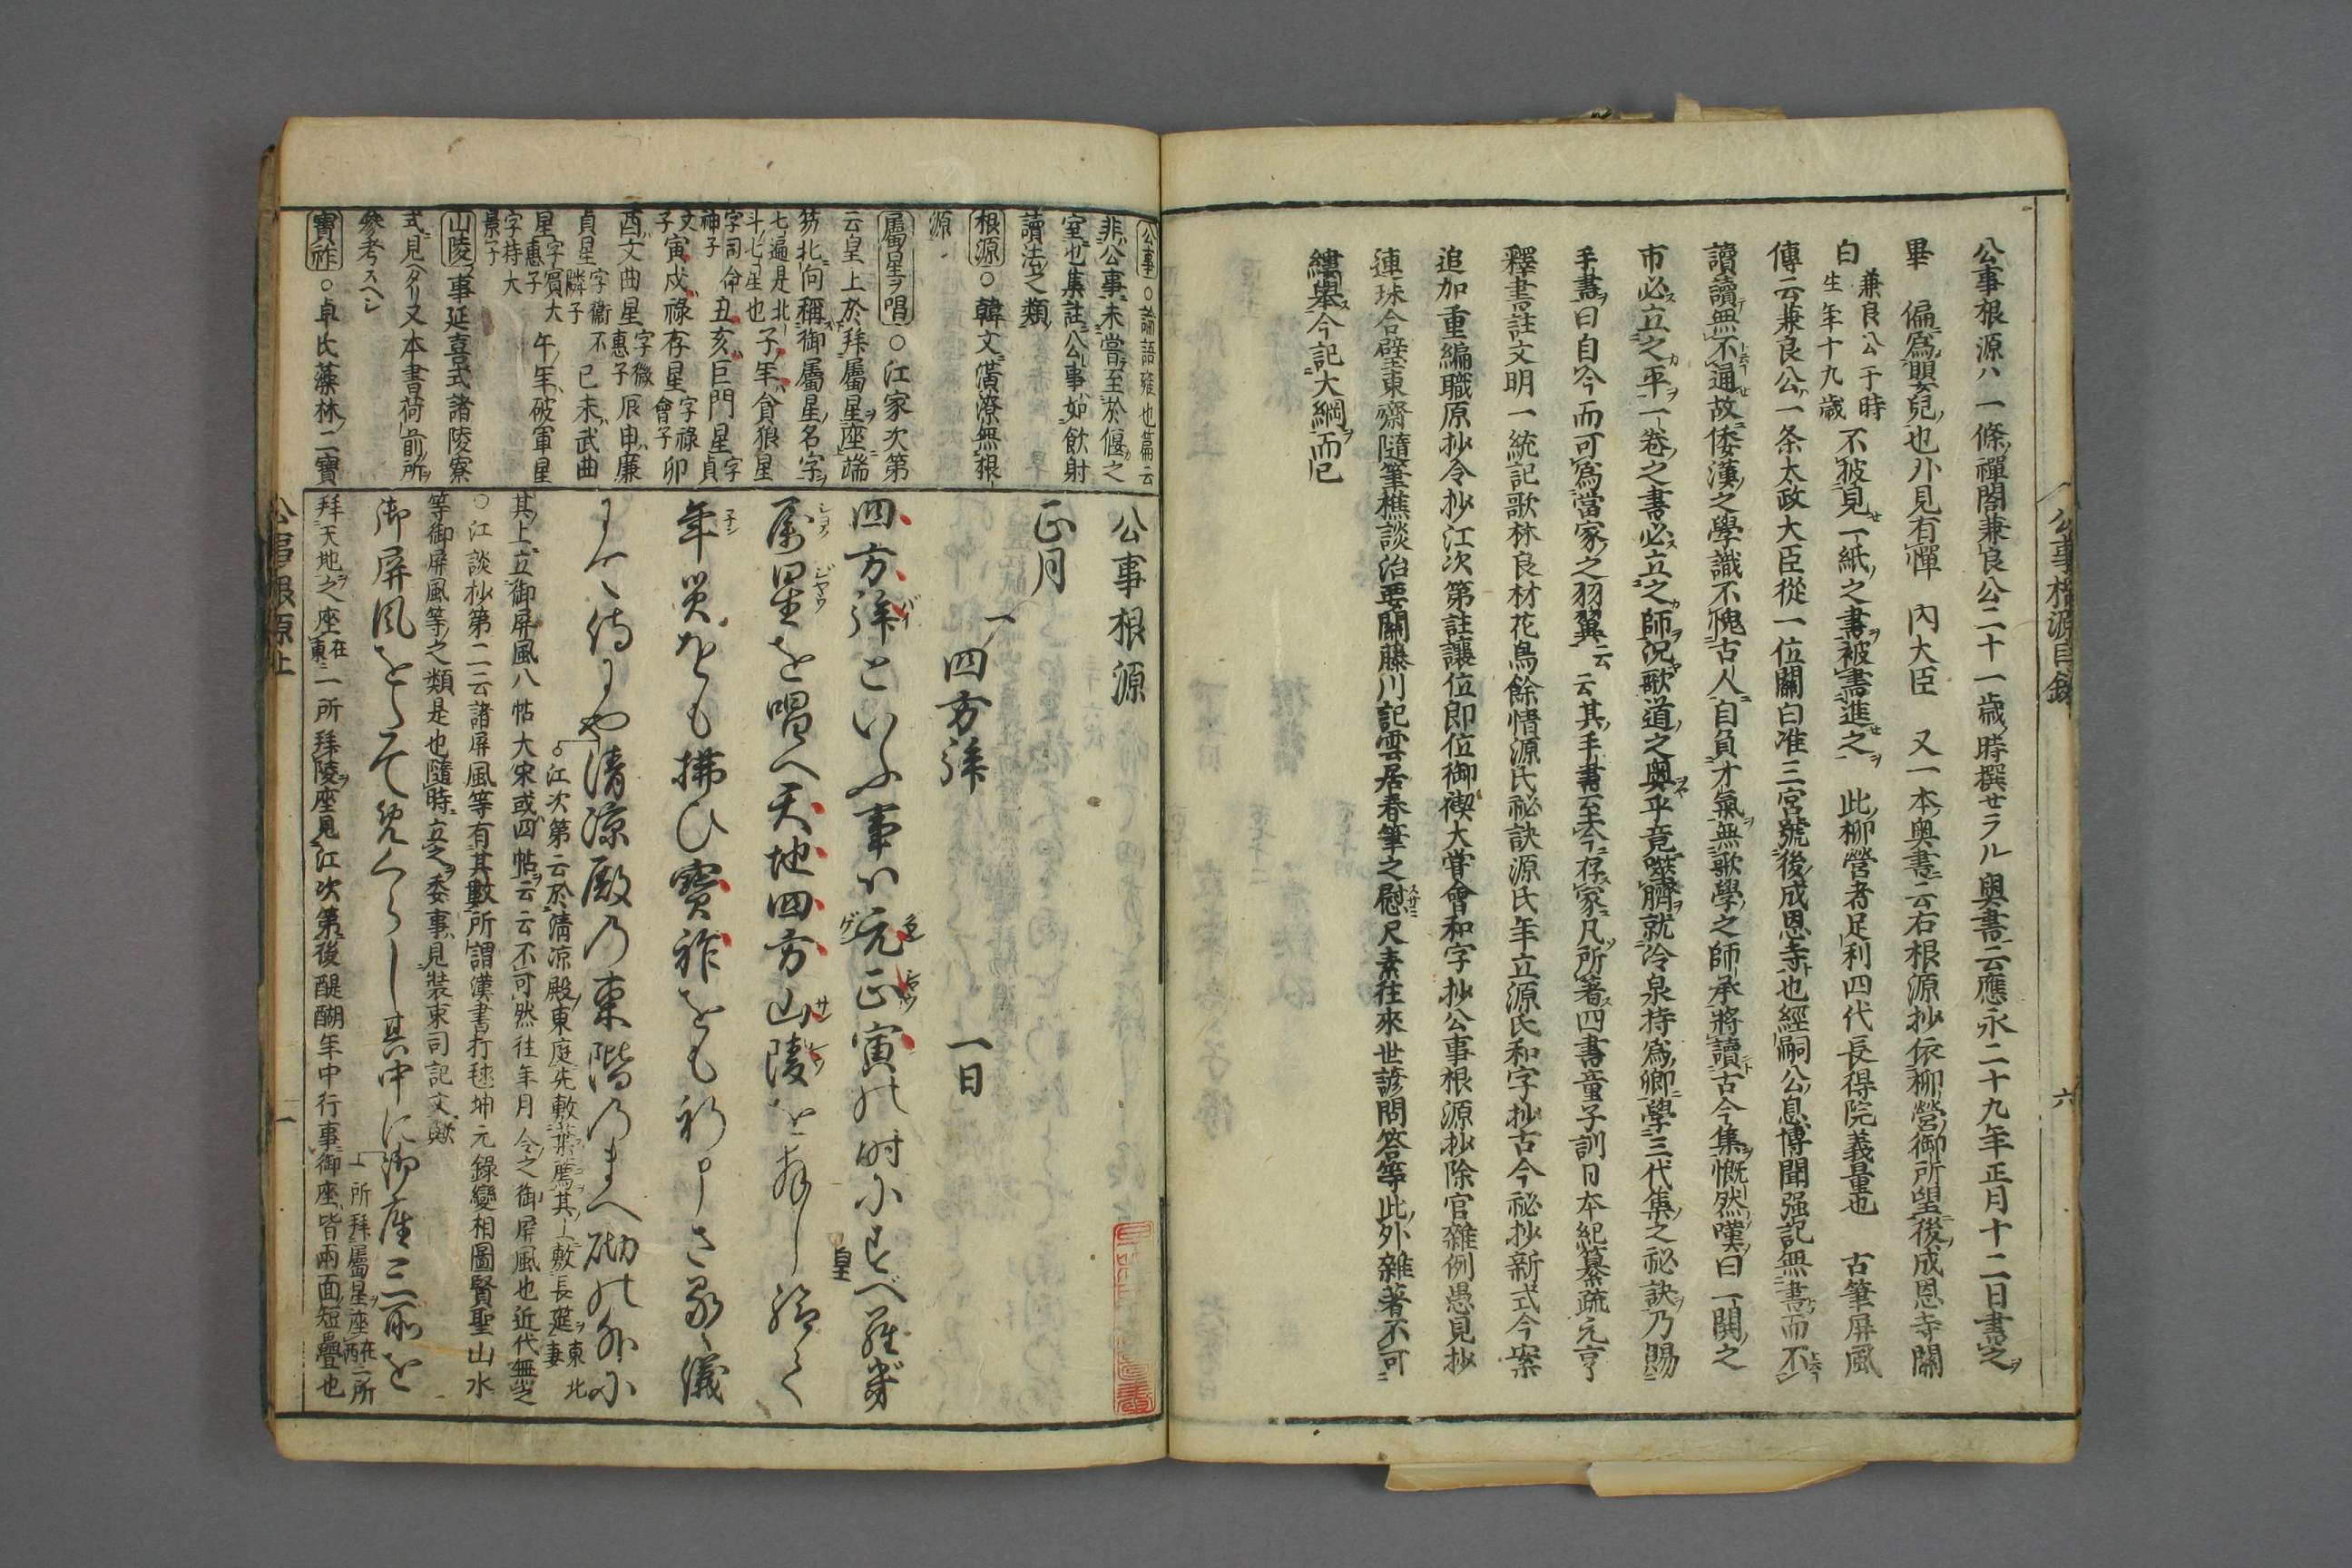 公事根源目錄
六
公事根源ハ一條禪閤兼良公二十一歲時撰セラル奧書云應永二十九年正月十二日書之ヲ
畢 偏爲嬰兒也外見有憚 內大臣 又一本奧書云右根源抄依柳營御所望後成恩寺關
白 兼良公于時生年十九歲 不披見一紙之書被書進之 此柳營者足利四代長得院義量也 古筆屏風
傳云兼良公一条太政大臣從一位關白准三宮號後成恩寺也經嗣公息博聞强記無書而不
讀讀無不通故倭漢之學識不愧古人自負才氣無歌學之師承將讀古今集慨然嘆曰一關之
市必立之平一卷之書必立之師況歌道之奧乎竟噬臍就冷泉持爲卿學三代集之祕訣乃賜
手書曰自今而可爲當家之羽翼云云其手書至今存家凡所著四書童子訓日本紀纂疏元亨
釋書註文明一統記歌林良材花鳥餘情源氏祕訣源氏年立源氏和字抄古今祕抄新式今案
追加重編職原抄令抄江次第註讓位卽位御禊大嘗會和字抄公事根源抄除官雜例愚見抄
連珠合璧東齋隨筆樵談治要關藤川記雲居春筆之慰尺素往來世諺問答等此外雜著不可
縷舉今記大綱而已
公事○論語雍也篇云
非公事未嘗至於偃之
室也集註公事如飲射
讀法之類
根源○韓文潢潦無根
源
屬星ヲ唱○江家次第
云皇上於拜屬星座端
笏北向稱御屬星名字
七遍是北斗七星也 子年貪狼星
字司命神子 丑亥巨門星 字貞文子
寅戌祿存星 字祿會子 卯
酉文曲星 字微惠子 辰申廉
貞星 字衞不隣子 巳未武曲
星 字賓大惠子 午年破軍星
字持大景子
山陵ノ事延喜式諸陵寮
式見ヘタリ又本書荷前ノ所
參考スヘシ
寶祚○卓氏藻林ニ寶
公事根源
正月
一四方拜 一日
四方拜といふ事ハ元正寅の時にすべ羅幾
皇
屬星を唱へ天地四方山陵を拜し給て
年災をも拂ひ寶祚をも祈申さるゝ儀
にて侍にや清凉殿の東階のまへ砌の外に
江次第云於清凉殿東庭先敷葉薦其上敷長莚東北妻
其上立御屏風八帖大宋或四帖云云不可然往年月令之御屏風也近代無之
○江談抄第二云諸屏風等有其數所謂漢書打毬坤元錄變相圖賢聖山水
等御屏風等之類是也隨時立之委事見裝束司記文歟
御屏風をたてめくらし其中に御座三所を
一所拜屬星座在西一所
拜天地之座在東一所拜陵座見江次第後醍醐年中行事御座皆兩面短疊也
公事根源上
一